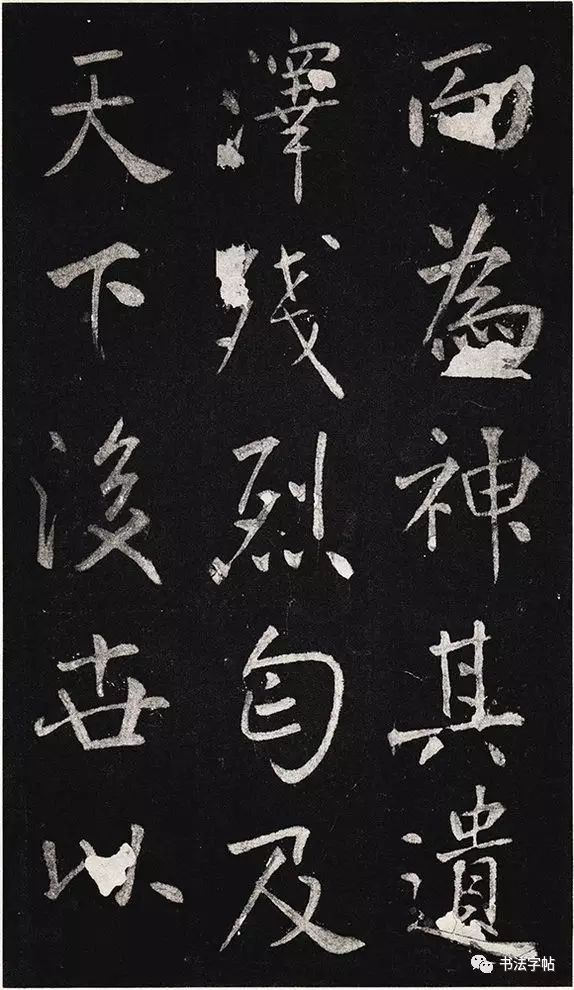 而為神其遺
澤残烈匄及
天下後世以
书法字帖